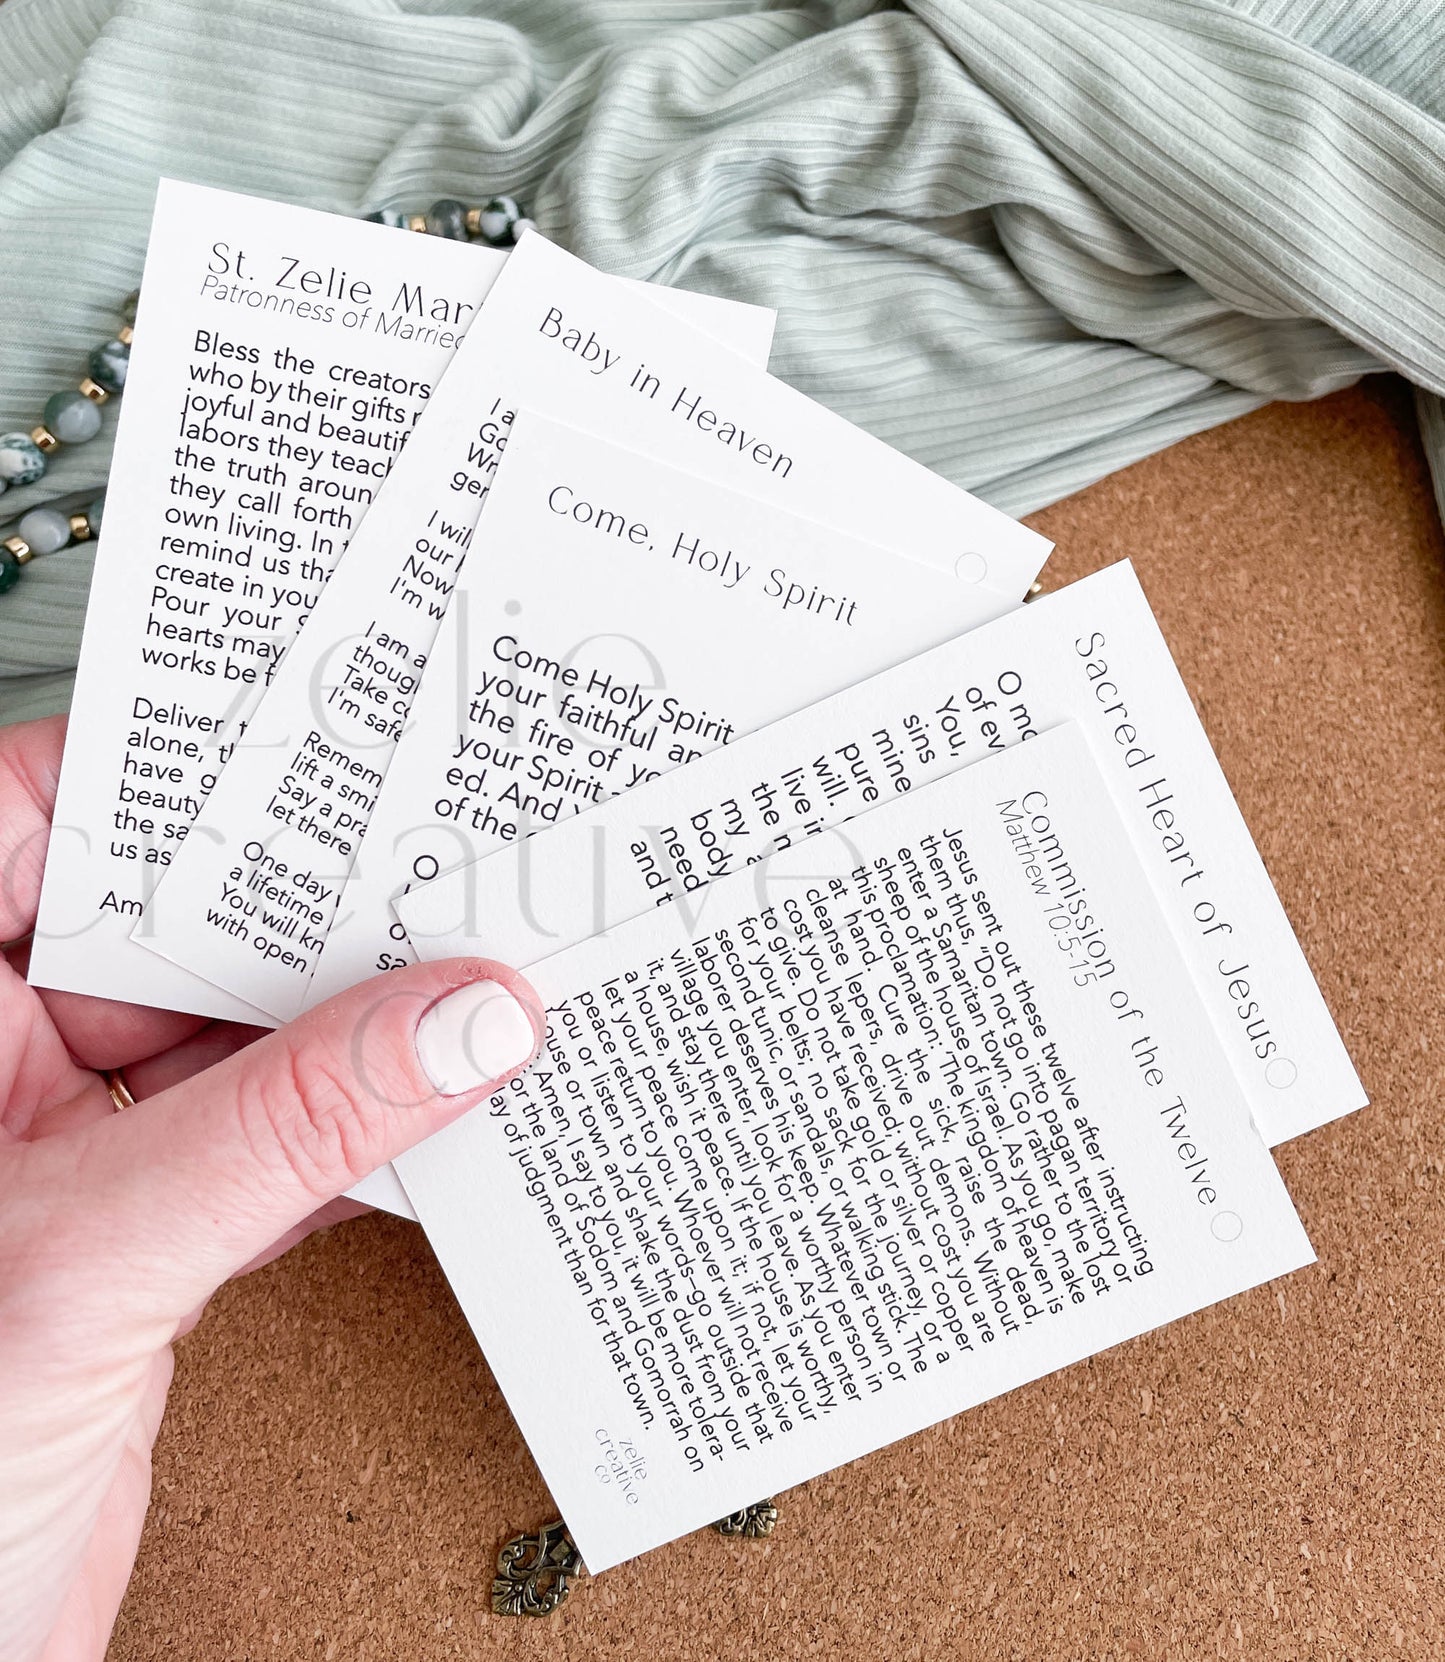 St. Zelie Mar
Patronness of Married
Bless the creators
who by their gifts
joyful and beautif
labors they teach
the truth aroun
they call forth
own living. In
remind us tha
create in you
Pour your
hearts may
works be f
Deliver
alone, th
have g
beauty
the sa
us as
Am
Baby in Heaven
I a
Go
Wr
ger
I will
our
Now
I'm w
I am a
though
Take co
I'm safe
Remem
lift a smi
Say a pra
let there
One day
a lifetime
You will kn
with open
Come, Holy Spirit
Come Holy Spirit
your faithful an
the fire of yo
your Spirit
ed. And
of the
O
Sacred Heart of Jesus
O mo
of ev
You,
sins
mine
pure
will.
live in
the n
my
body
need
and t
Commission of the Twelve
Matthew 10:5-15
Jesus sent out these twelve after instructing
them thus, "Do not go into pagan territory or
enter a Samaritan town. Go rather to the lost
sheep of the house of Israel. As you go, make
this proclamation: 'The kingdom of heaven is
at hand. Cure the sick, raise the dead,
cleanse lepers, drive out demons. Without
cost you have received; without cost you are
to give. Do not take gold or silver or copper
for your belts; no sack for the journey, or a
second tunic, or sandals, or walking stick. The
laborer deserves his keep. Whatever town or
village you enter, look for a worthy person in
it, and stay there until you leave. As you enter
a house, wish it peace. If the house is worthy,
let your peace come upon it; if not, let your
peace return to you. Whoever will not receive
you or listen to your words—go outside that
house or town and shake the dust from your
Amen, I say to you, it will be more tolera-
for the land of Sodom and Gomorrah on
day of judgment than for that town.
zelie
creative
co
zelie
creative
co